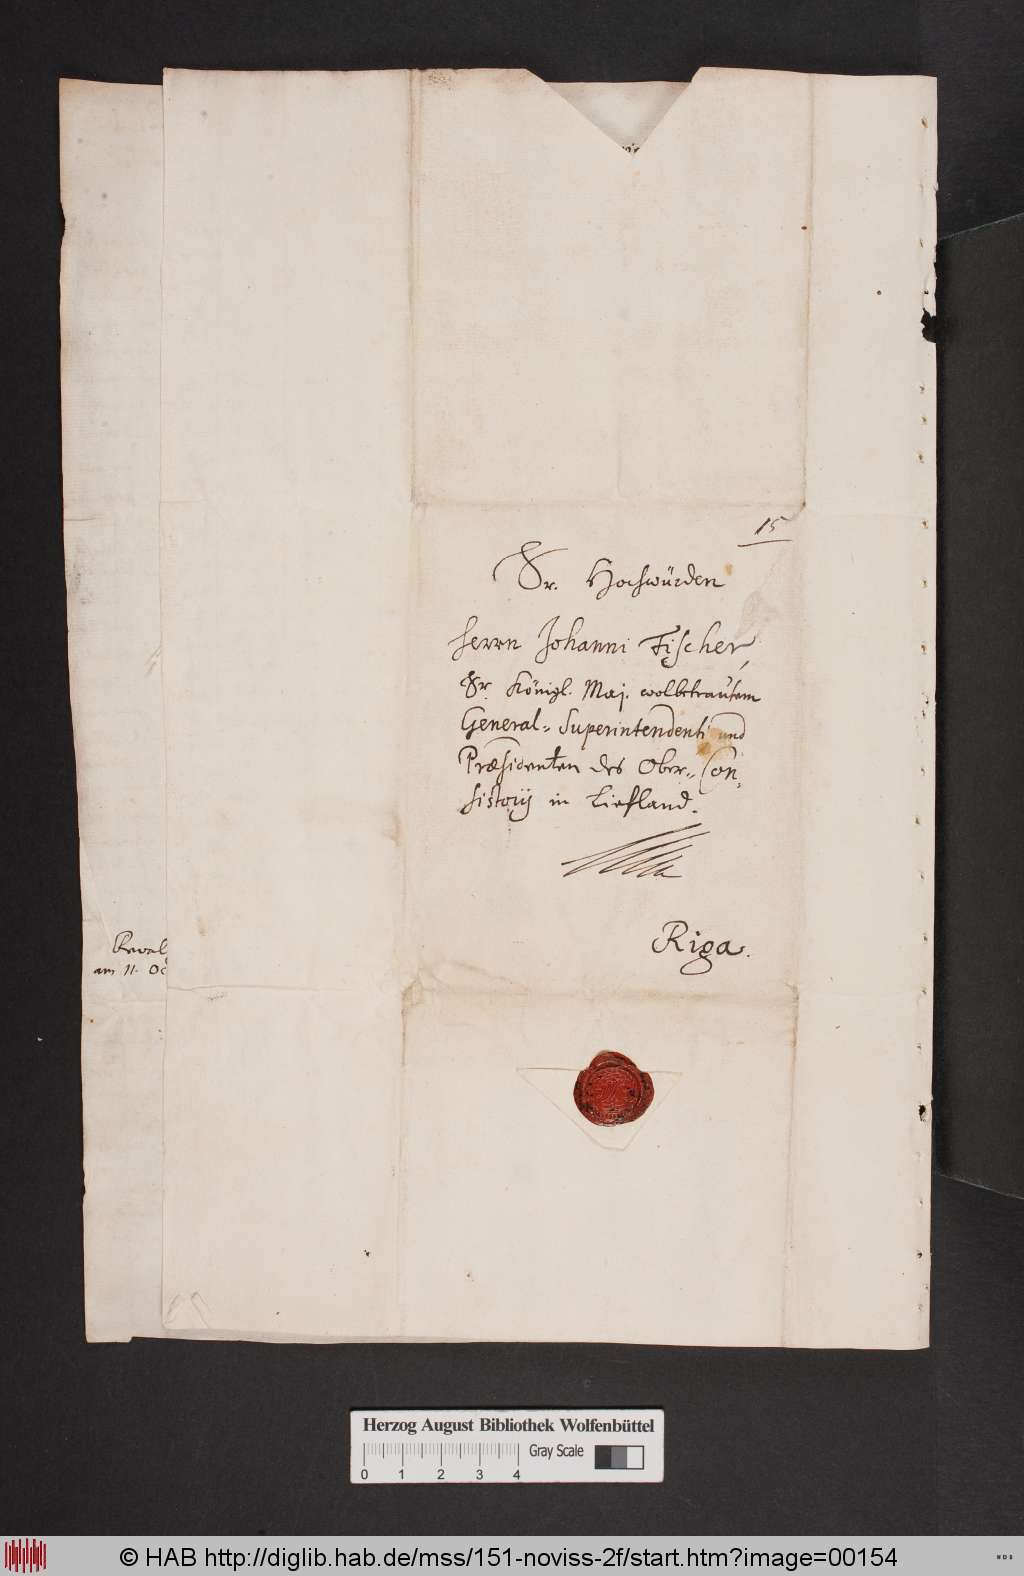 15
Sr. Hochwürden
Herrn Johanni Fischer,
Sr. Königl. Maj. wolbetrautem
General-Superintendenti und
Præsidenten des Ober-Con-
sistorij in Liefland.
Riga.
Reval
am 11. Oc
Herzog August Bibliothek Wolfenbüttel
Gray Scale
0 1 2 3 4
© HAB http://diglib.hab.de/mss/151-noviss-2f/start.htm?image=00154